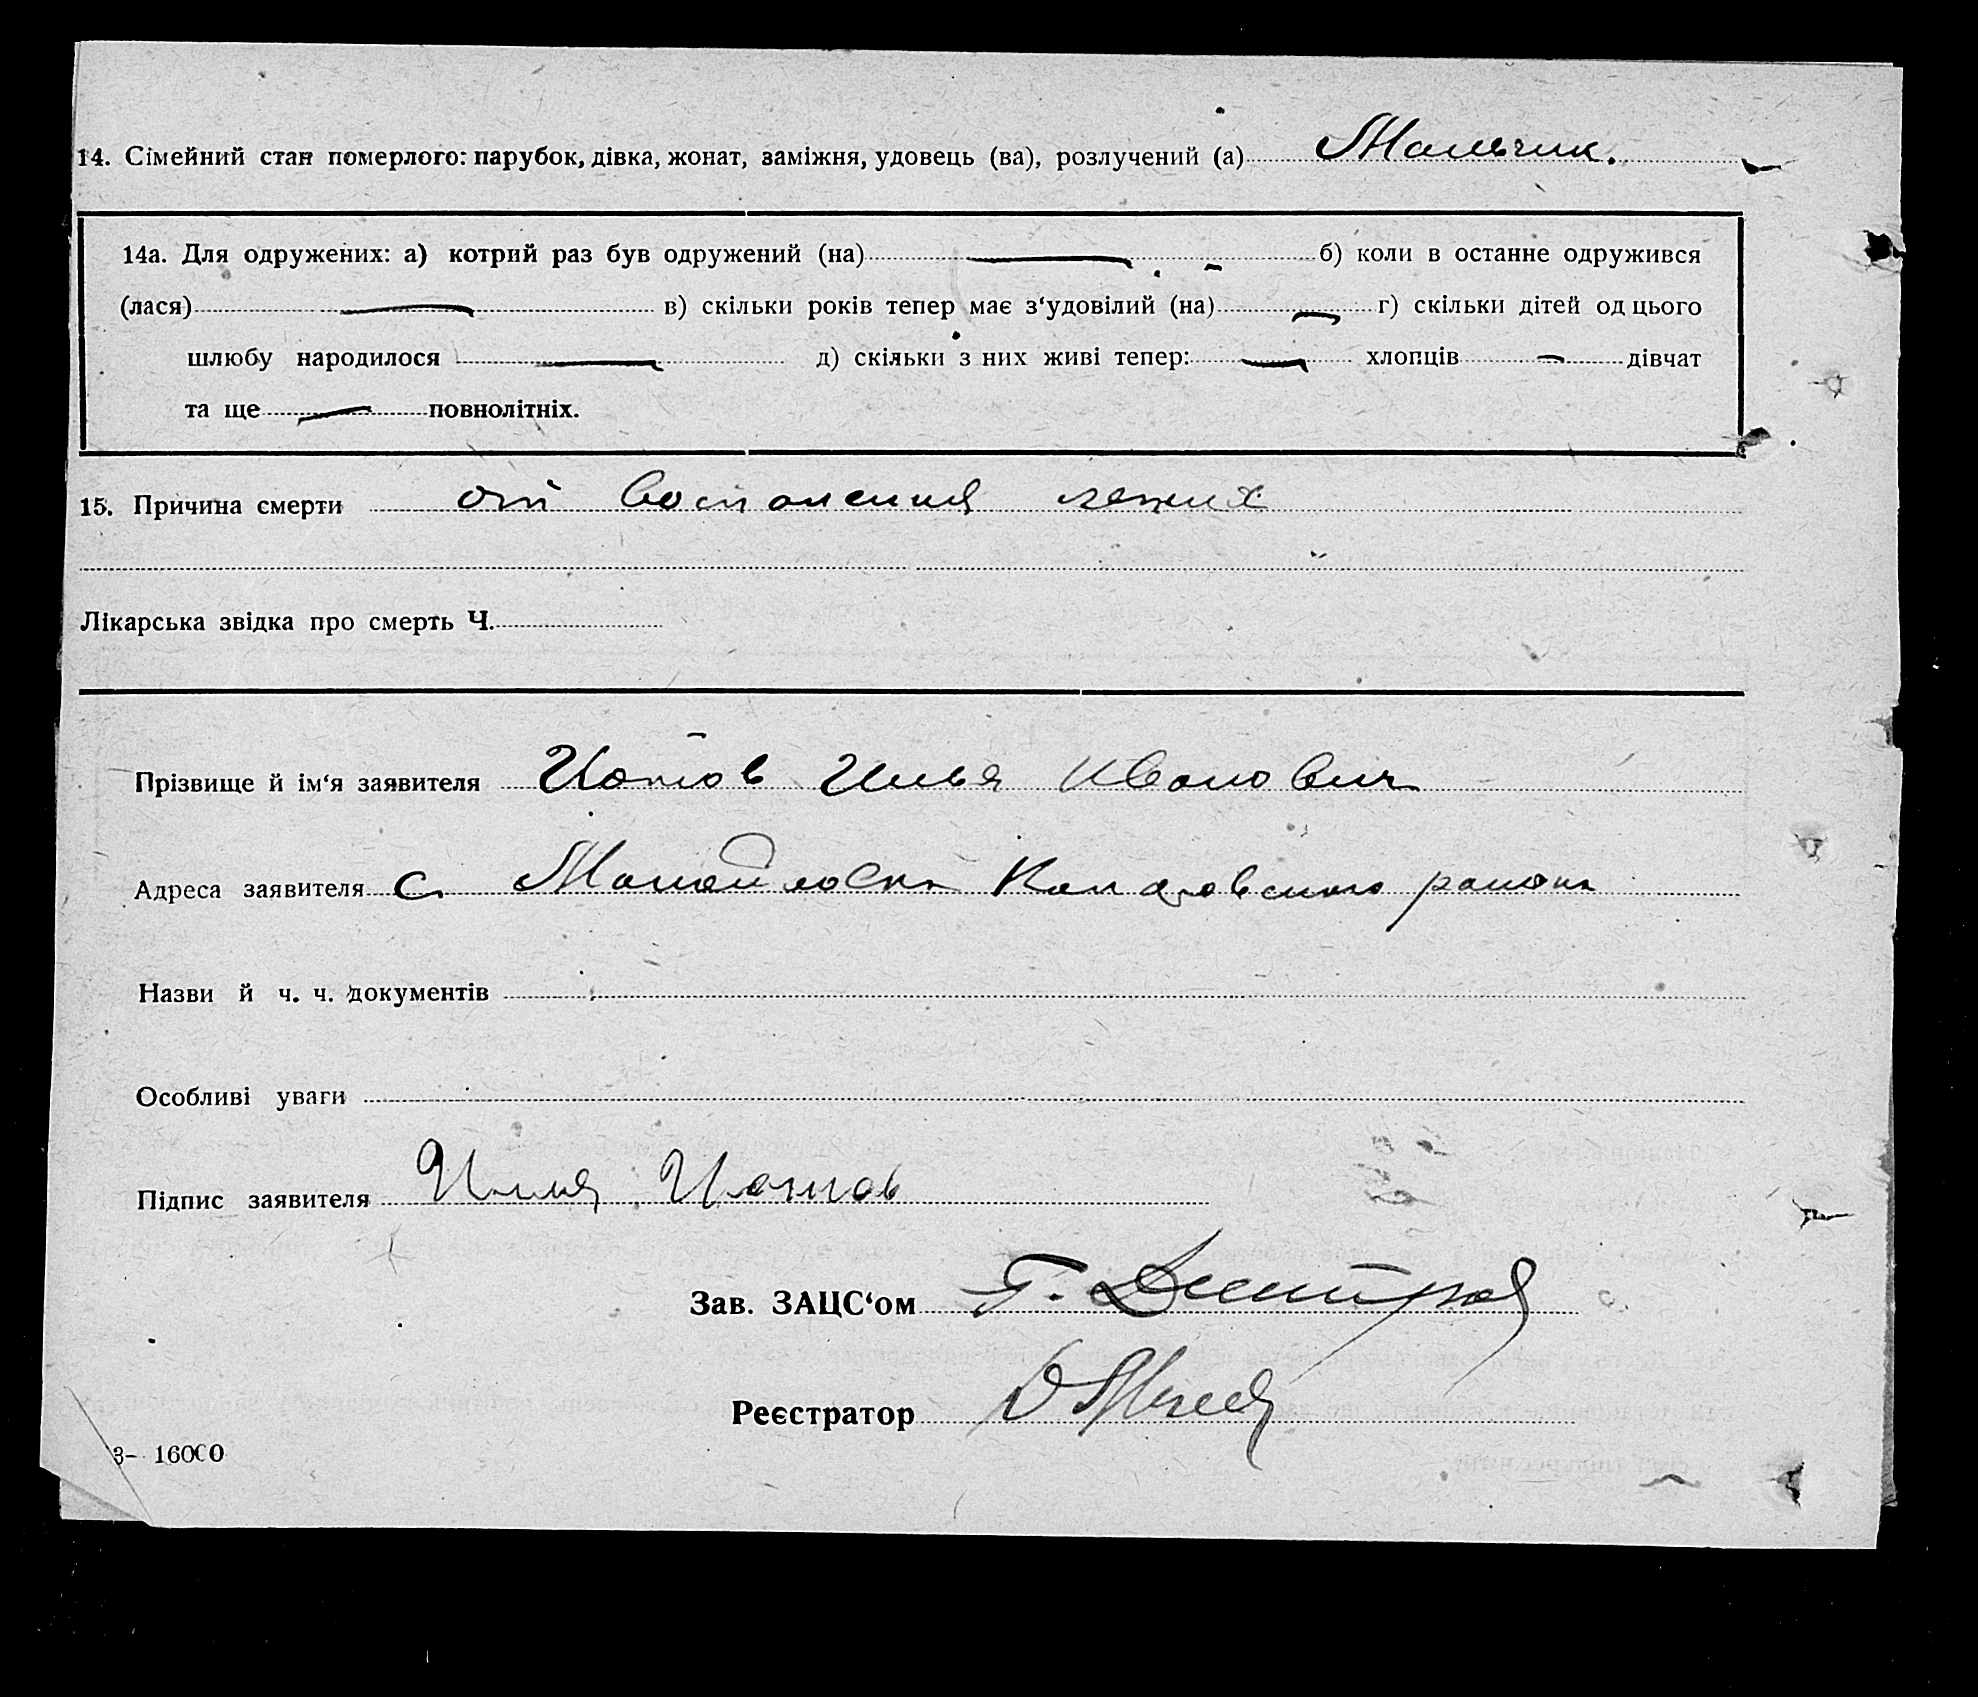 14. Сімейний стан померлого: парубок, дівка, жонат, заміжня, удовець (ва), розлучений (а) Мальчик.
14а. Для одружених: а) котрий раз був одружений (на) б) коли в останне одружився
(лася) в) скільки років тепер має з‘удовілий (на) г) скільки дітей од цього
шлюбу народилося д) скільки з них живі тепер: хлопців дівчат
та ще повнолітніх.
15. Причина смерти от воспаления легких
Лікарська звідка про смерть Ч.
Прізвище й ім‘я заявителя Илья Иванович
Адреса заявителя с. района
Назви й ч. ч. документів
Особливі уваги
Підпис заявителя Илья
Зав. ЗАЦС‘ом Г. Димитров
Реєстратор
3- 16000